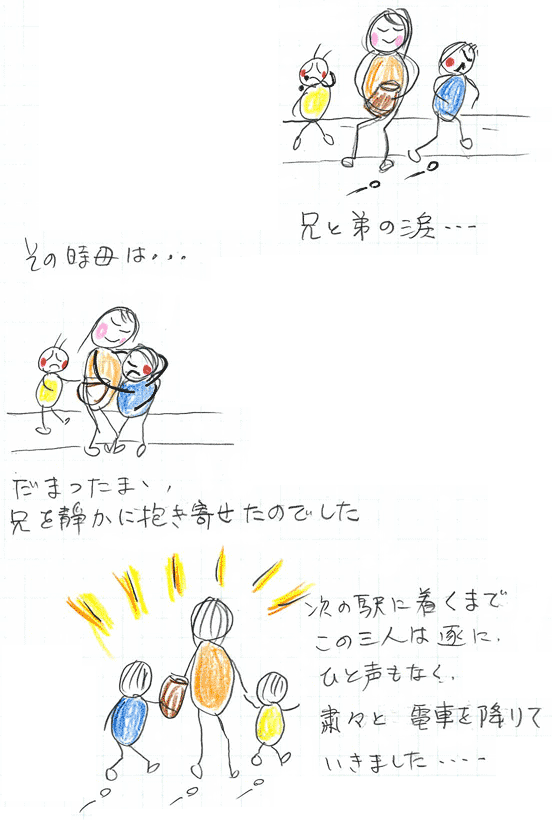 兄と弟の涙・・・
その時母は・・・
だまったまゝ,
兄を静かに抱き寄せたのでした
次の駅に着くまで
この三人は遂に,
ひと声もなく,
粛々と 電車を降りて
いきました・・・・